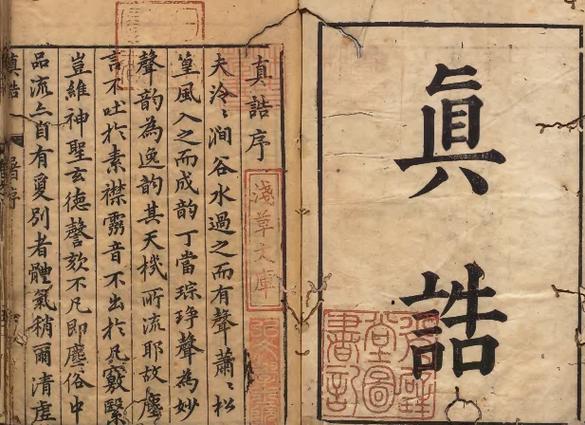 真誥
真誥序
淺草文庫
夫泠〻澗谷水過之而有聲蕭〻松
篁風入之而成韵丁當琮琤聲為妙
聲韵為逸韵其天機所流耶故塵
言不吐於素襟霛音不出於凡竅緊
豈維神聖玄德謦欬不凡即塵俗中
品流亦自有夐別者體氣稍爾清虛
真誥
序